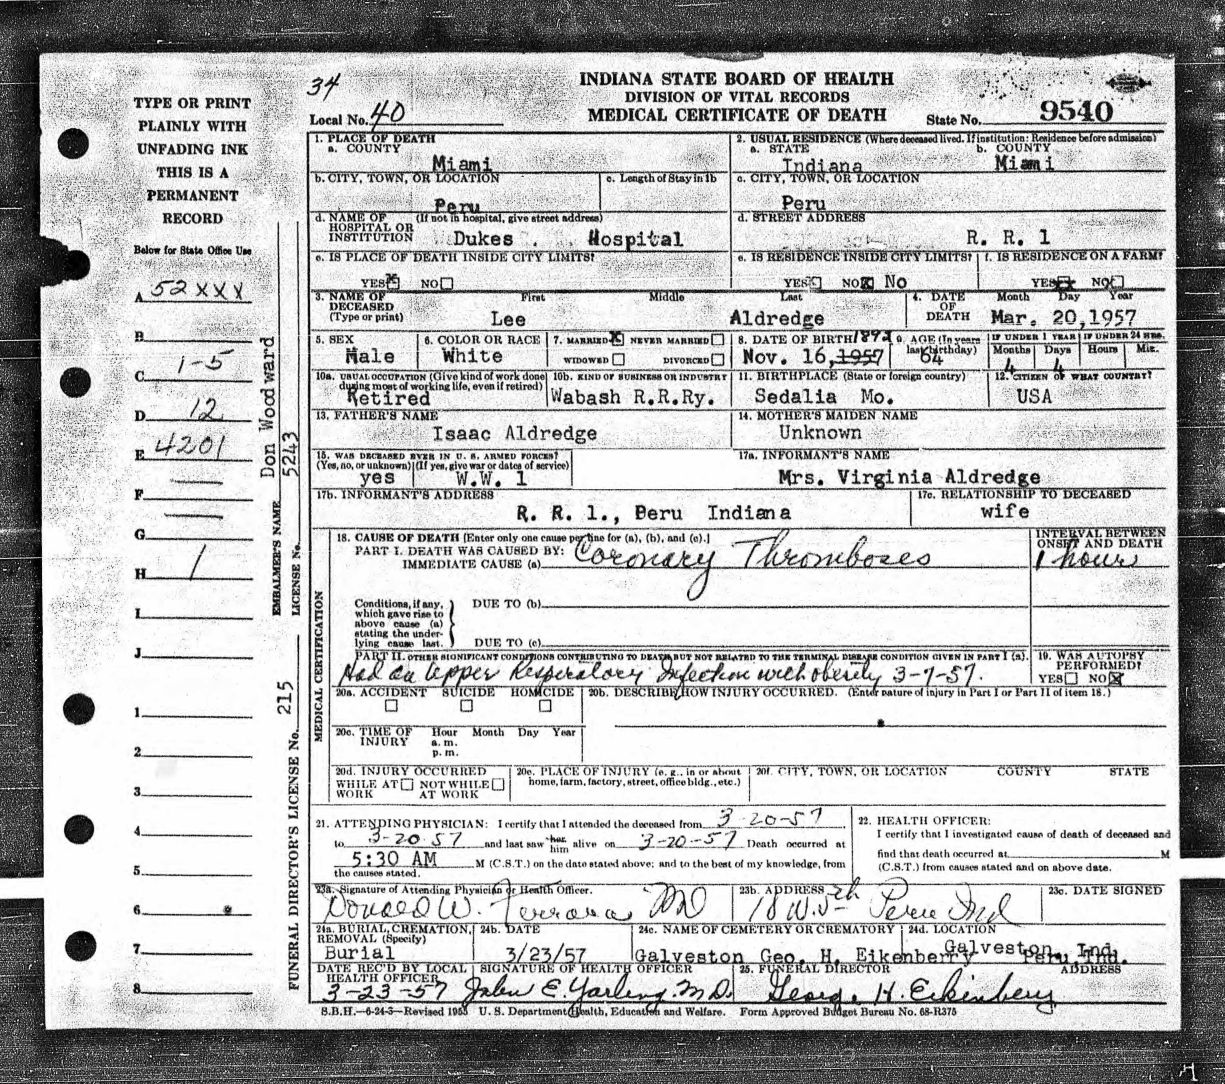 34
INDIANA STATE BOARD OF HEALTH
DIVISION OF VITAL RECORDS
MEDICAL CERTIFICATE OF DEATH
Local No. 40
State No. 9540
TYPE OR PRINT
PLAINLY WITH
UNFADING INK
THIS IS A
PERMANENT
RECORD
Below for State Office Use
A 52XXX
B
C 1-5
D 12
E 4201
F —
G —
H 1
I
J
1
2
3
4
5
6
7
8
EMBALMER'S NAME Don Woodward
LICENSE No. 5243
FUNERAL DIRECTOR'S LICENSE No. 215
1. PLACE OF DEATH
a. COUNTY
Miami
2. USUAL RESIDENCE (Where deceased lived. If institution: Residence before admission)
a. STATE b. COUNTY
Indiana Miami
b. CITY, TOWN, OR LOCATION c. Length of Stay in 1b
Peru
c. CITY, TOWN, OR LOCATION
Peru
d. NAME OF HOSPITAL OR INSTITUTION (If not in hospital, give street address)
Dukes Hospital
d. STREET ADDRESS
R. R. 1
e. IS PLACE OF DEATH INSIDE CITY LIMITS?
YES☒ NO☐
e. IS RESIDENCE INSIDE CITY LIMITS? f. IS RESIDENCE ON A FARM?
YES☐ NO☒ No YES☒ NO☐
3. NAME OF DECEASED (Type or print) First Middle Last
Lee Aldredge
4. DATE OF DEATH Month Day Year
Mar. 20,1957
5. SEX 6. COLOR OR RACE 7. MARRIED☒ NEVER MARRIED☐
Male White WIDOWED☐ DIVORCED☐
8. DATE OF BIRTH 1892 9. AGE (In years last birthday) IF UNDER 1 YEAR IF UNDER 24 HRS.
Months Days Hours Min.
Nov. 16,1957 64 4 4
10a. USUAL OCCUPATION (Give kind of work done during most of working life, even if retired) 10b. KIND OF BUSINESS OR INDUSTRY
Retired Wabash R.R.Ry.
11. BIRTHPLACE (State or foreign country) 12. CITIZEN OF WHAT COUNTRY?
Sedalia Mo. USA
13. FATHER'S NAME 14. MOTHER'S MAIDEN NAME
Isaac Aldredge Unknown
15. WAS DECEASED EVER IN U. S. ARMED FORCES?
(Yes, no, or unknown) (If yes, give war or dates of service)
yes W.W. 1
17a. INFORMANT'S NAME
Mrs. Virginia Aldredge
17b. INFORMANT'S ADDRESS 17c. RELATIONSHIP TO DECEASED
R. R. 1., Peru Indiana wife
MEDICAL CERTIFICATION
18. CAUSE OF DEATH [Enter only one cause per line for (a), (b), and (c).]
PART I. DEATH WAS CAUSED BY:
IMMEDIATE CAUSE (a) Coronary Thromboses
INTERVAL BETWEEN ONSET AND DEATH
1 hour
Conditions, if any, which gave rise to above cause (a) stating the underlying cause last.
DUE TO (b)
DUE TO (c)
PART II. OTHER SIGNIFICANT CONDITIONS CONTRIBUTING TO DEATH BUT NOT RELATED TO THE TERMINAL DISEASE CONDITION GIVEN IN PART I (a).
Had an Upper Respiratory Infection with obesity 3-7-57.
19. WAS AUTOPSY PERFORMED?
YES☐ NO☒
20a. ACCIDENT SUICIDE HOMICIDE
☐ ☐ ☐
20b. DESCRIBE HOW INJURY OCCURRED. (Enter nature of injury in Part I or Part II of item 18.)
20c. TIME OF INJURY Hour Month Day Year
a. m.
p. m.
20d. INJURY OCCURRED
WHILE AT WORK ☐ NOT WHILE AT WORK ☐
20e. PLACE OF INJURY (e. g., in or about home, farm, factory, street, office bldg., etc.)
20f. CITY, TOWN, OR LOCATION COUNTY STATE
21. ATTENDING PHYSICIAN: I certify that I attended the deceased from 3-20-57
to 3-20-57 and last saw her him alive on 3-20-57 Death occurred at
5:30 AM M (C.S.T.) on the date stated above; and to the best of my knowledge, from
the causes stated.
22. HEALTH OFFICER:
I certify that I investigated cause of death of deceased and
find that death occurred at M
(C.S.T.) from causes stated and on above date.
23a. Signature of Attending Physician or Health Officer. 23b. ADDRESS 23c. DATE SIGNED
Donald W. Ferrara MD 18 W. 5th Peru Ind
24a. BURIAL, CREMATION, REMOVAL (Specify) 24b. DATE 24c. NAME OF CEMETERY OR CREMATORY 24d. LOCATION
Burial 3/23/57 Galveston Galveston Ind.
Geo. H. Eikenberry Peru, Ind.
DATE REC'D BY LOCAL HEALTH OFFICER SIGNATURE OF HEALTH OFFICER 25. FUNERAL DIRECTOR ADDRESS
3-23-57 John E. Yarling M.D. George H. Eikenberry
S.B.H.—6-24-3—Revised 1955 U. S. Department Health, Education and Welfare. Form Approved Budget Bureau No. 68-R375